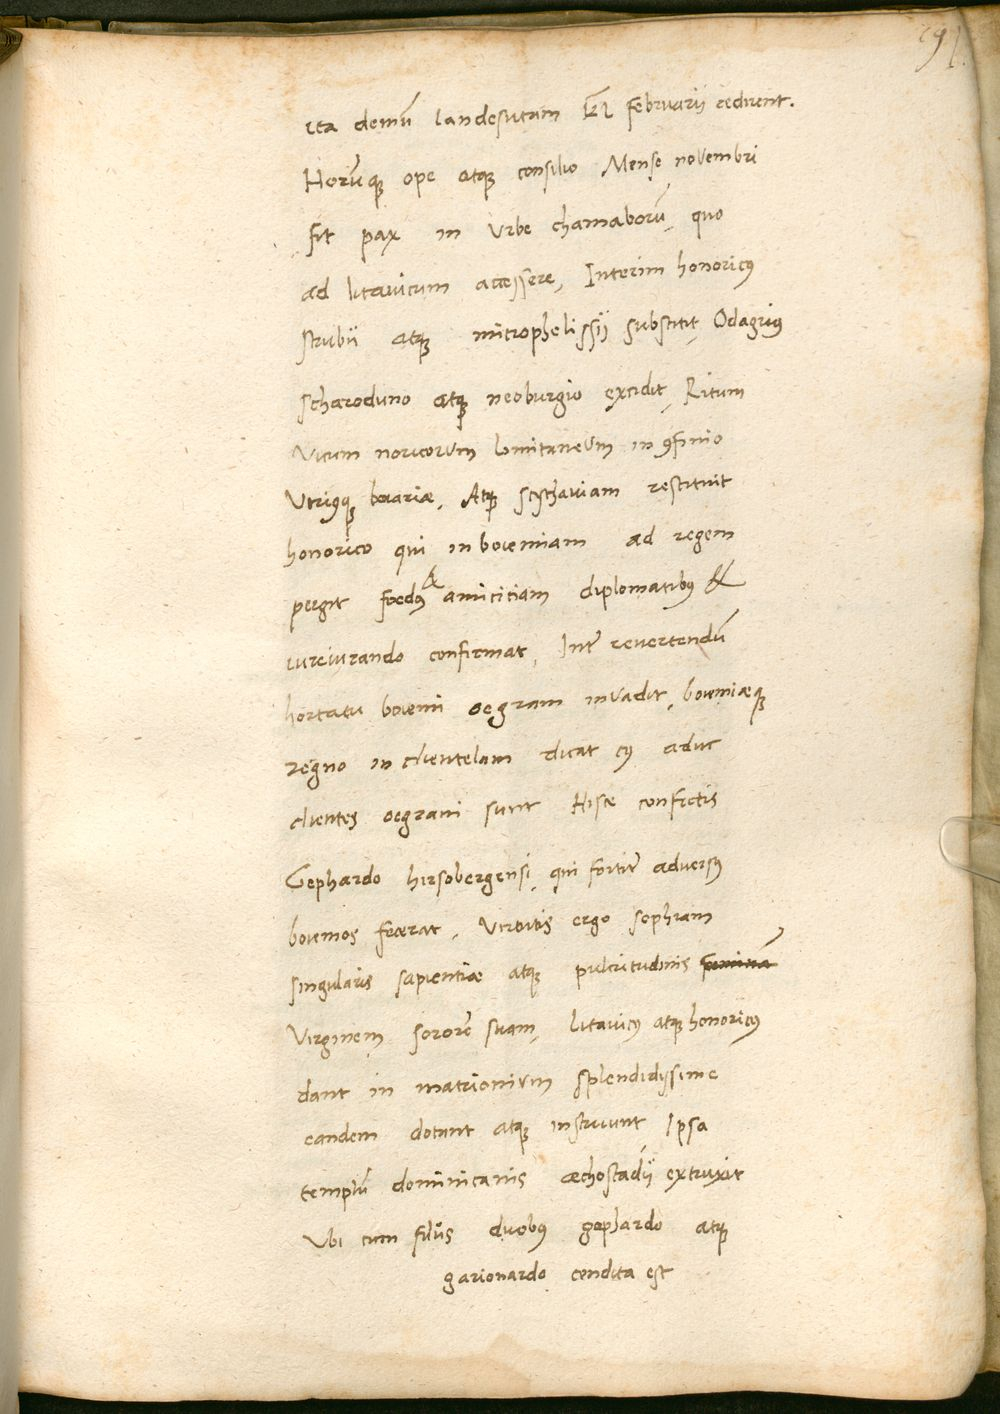 91.
ita demū landesutam kl februarij redirent.
Horūqꝫ ope atqꝫ consilio Mense novembri
fit pax in Vrbe chamaborū, quo
ad litavicum accessere, Interim honoricꝰ
strubij atqꝫ microphelissij substitit, Odagriꝰ
scharoduno atqꝫ neoburgio excidit, Ritum
Vicum noricorum limitaneum in ꝯfinio
Vtriꝰqꝫ bavariæ, Atqꝫ scythaviam restituit
honorico qui in boiemiam ad regem
pergit foedꝰ & amiciciam diplomatibꝰ &
iureiurando confirmat, Int̄ revertendū
hortatu boiemi oegram invadit, boiemiæqꝫ
regno in clientelam dicat cꝰ aduc
clientes oegrani sunt Hisce confectis
Gephardo hirsobergensi, qui fortit̄ adversꝰ
boiemos fecerat, Virtutis ergo sophiam
singularis sapientiæ atqꝫ pulcritudinis feminā
Virginem sororē suam, litavicꝰ atqꝫ honoricꝰ
dant in matrionium splendidissime
eandem dotant atqꝫ instruunt, Ipsa
templū dominicanis æchostadij extruxit
Vbi cum filiis duobꝰ gephardo atqꝫ
garionardo condita est